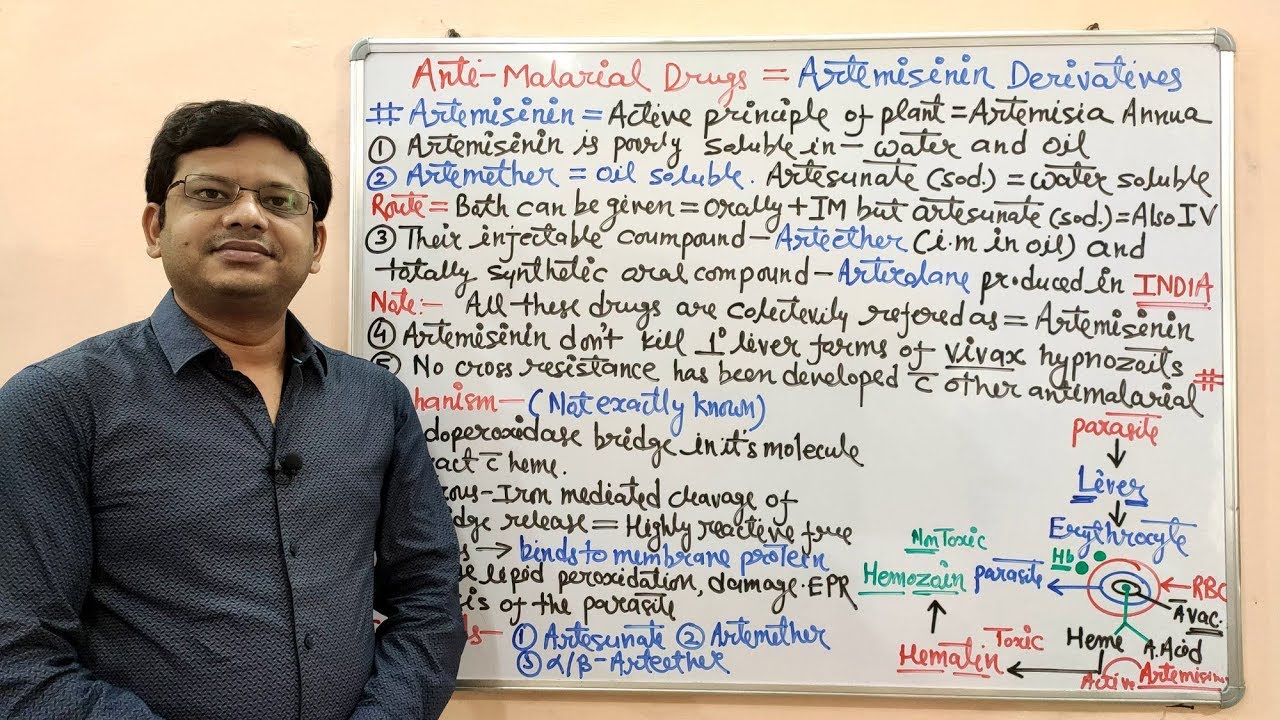 Anti-Malarial Drugs = Artemisinin Derivatives
# Artemisinin = Active principle of plant = Artemisia Annua
① Artemisinin is poorly soluble in - water and oil
② Artemether = oil soluble. Artesunate (sod.) = water soluble
Route = Both can be given = orally + IM but artesunate (sod.) = Also IV
③ Their injectable coumpound - Arteether (i.m in oil) and
totally synthetic oral compound - Arterolane produced in INDIA
Note:- All these drugs are colectevily refered as = Artemisinin
④ Artemisinin don't kill 1° liver forms of vivax hypnozoits
⑤ No cross resistance has been developed c̅ other antimalarial #
hanism - (Not exactly known)
doperoxidase bridge in it's molecule
act c̅ heme.
rous-Iron mediated cleavage of
dge release = Highly reactive free
s → binds to membrane protein
e lipid peroxidation, damage. EPR
is of the parasite
ds - ① Artesunate ② Artemether
③ α/β - Arteether
parasite
Liver
Erythrocyte
Hb
parasite
RBC
A vac.
Heme
A. Acid
Active Artemisin
Toxic
Hematin
Hemozain
NonToxic